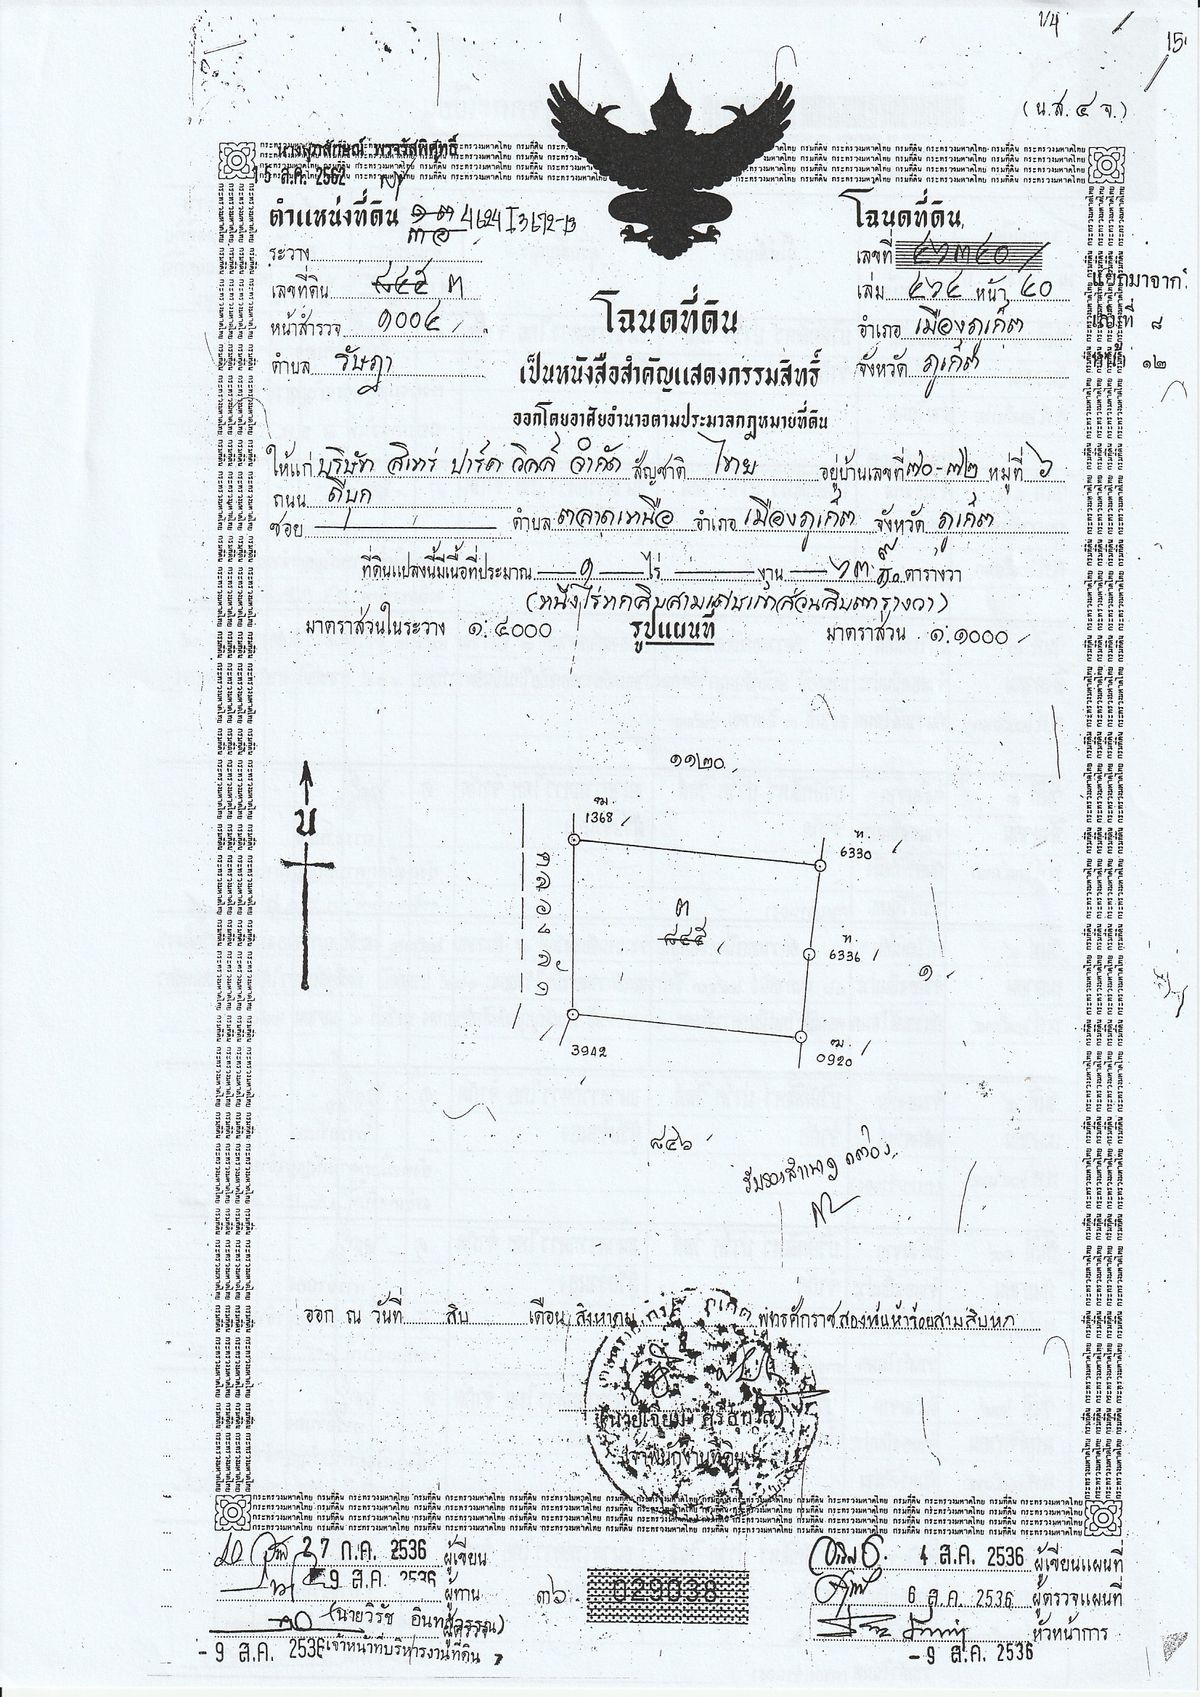 1/4
15
(น.ส. ๔ จ.)
15 ส.ค. 2562
ตำแหน่งที่ดิน 4624 I 3672-13
โฉนดที่ดิน
ระวาง
เลขที่ ๔๖๓๔๐
เลขที่ดิน ๘๔๕ ๓
เล่ม ๔๖๔ หน้า ๔๐
แยกมาจาก
หน้าสำรวจ ๑๐๐๔
โฉนดที่ดิน
อำเภอ เมืองภูเก็ต
๘
ตำบล รัษฎา
จังหวัด ภูเก็ต
๑๒
เป็นหนังสือสำคัญแสดงกรรมสิทธิ์
ออกโดยอาศัยอำนาจตามประมวลกฎหมายที่ดิน
ให้แก่ บริษัท สิเทร่ ปาร์ค วิลล์ จำกัด สัญชาติ ไทย อยู่บ้านเลขที่ ๗๐-๗๒ หมู่ที่ ๖
ถนน ดีบุก
ซอย ตำบล ตลาดเหนือ อำเภอ เมืองภูเก็ต จังหวัด ภูเก็ต
ที่ดินแปลงนี้มีเนื้อที่ประมาณ ๑ ไร่ งาน ๖๓ ๙/๑๐ ตารางวา
(หนึ่งไร่หกสิบสามเศษเก้าส่วนสิบตารางวา)
มาตราส่วนในระวาง ๑:๔๐๐๐ รูปแผนที่ มาตราส่วน ๑:๑๐๐๐
๑๑๒๐
น
1368
ท
6330
๓
๘๔๕
ท
6336
๑
3942
0920
๘๔๖
รับรองสำเนาถูกต้อง
ออก ณ วันที่ สิบ เดือน สิงหาคม พุทธศักราช สองพันห้าร้อยสามสิบหก
(นายเจียม ศรีสุทวัส)
เจ้าพนักงานที่ดิน
27 ก.ค. 2536 ผู้เขียน
4 ส.ค. 2536 ผู้เขียนแผนที่
9 ส.ค. 2536 ผู้ทาน
๓๖ 029038
6 ส.ค. 2536 ผู้ตรวจแผนที่
(นายวิรัช อินทสุวรรณ) ผู้ตรวจ
หัวหน้าการ
- 9 ส.ค. 2536 เจ้าหน้าที่บริหารงานที่ดิน 7
- 9 ส.ค. 2536